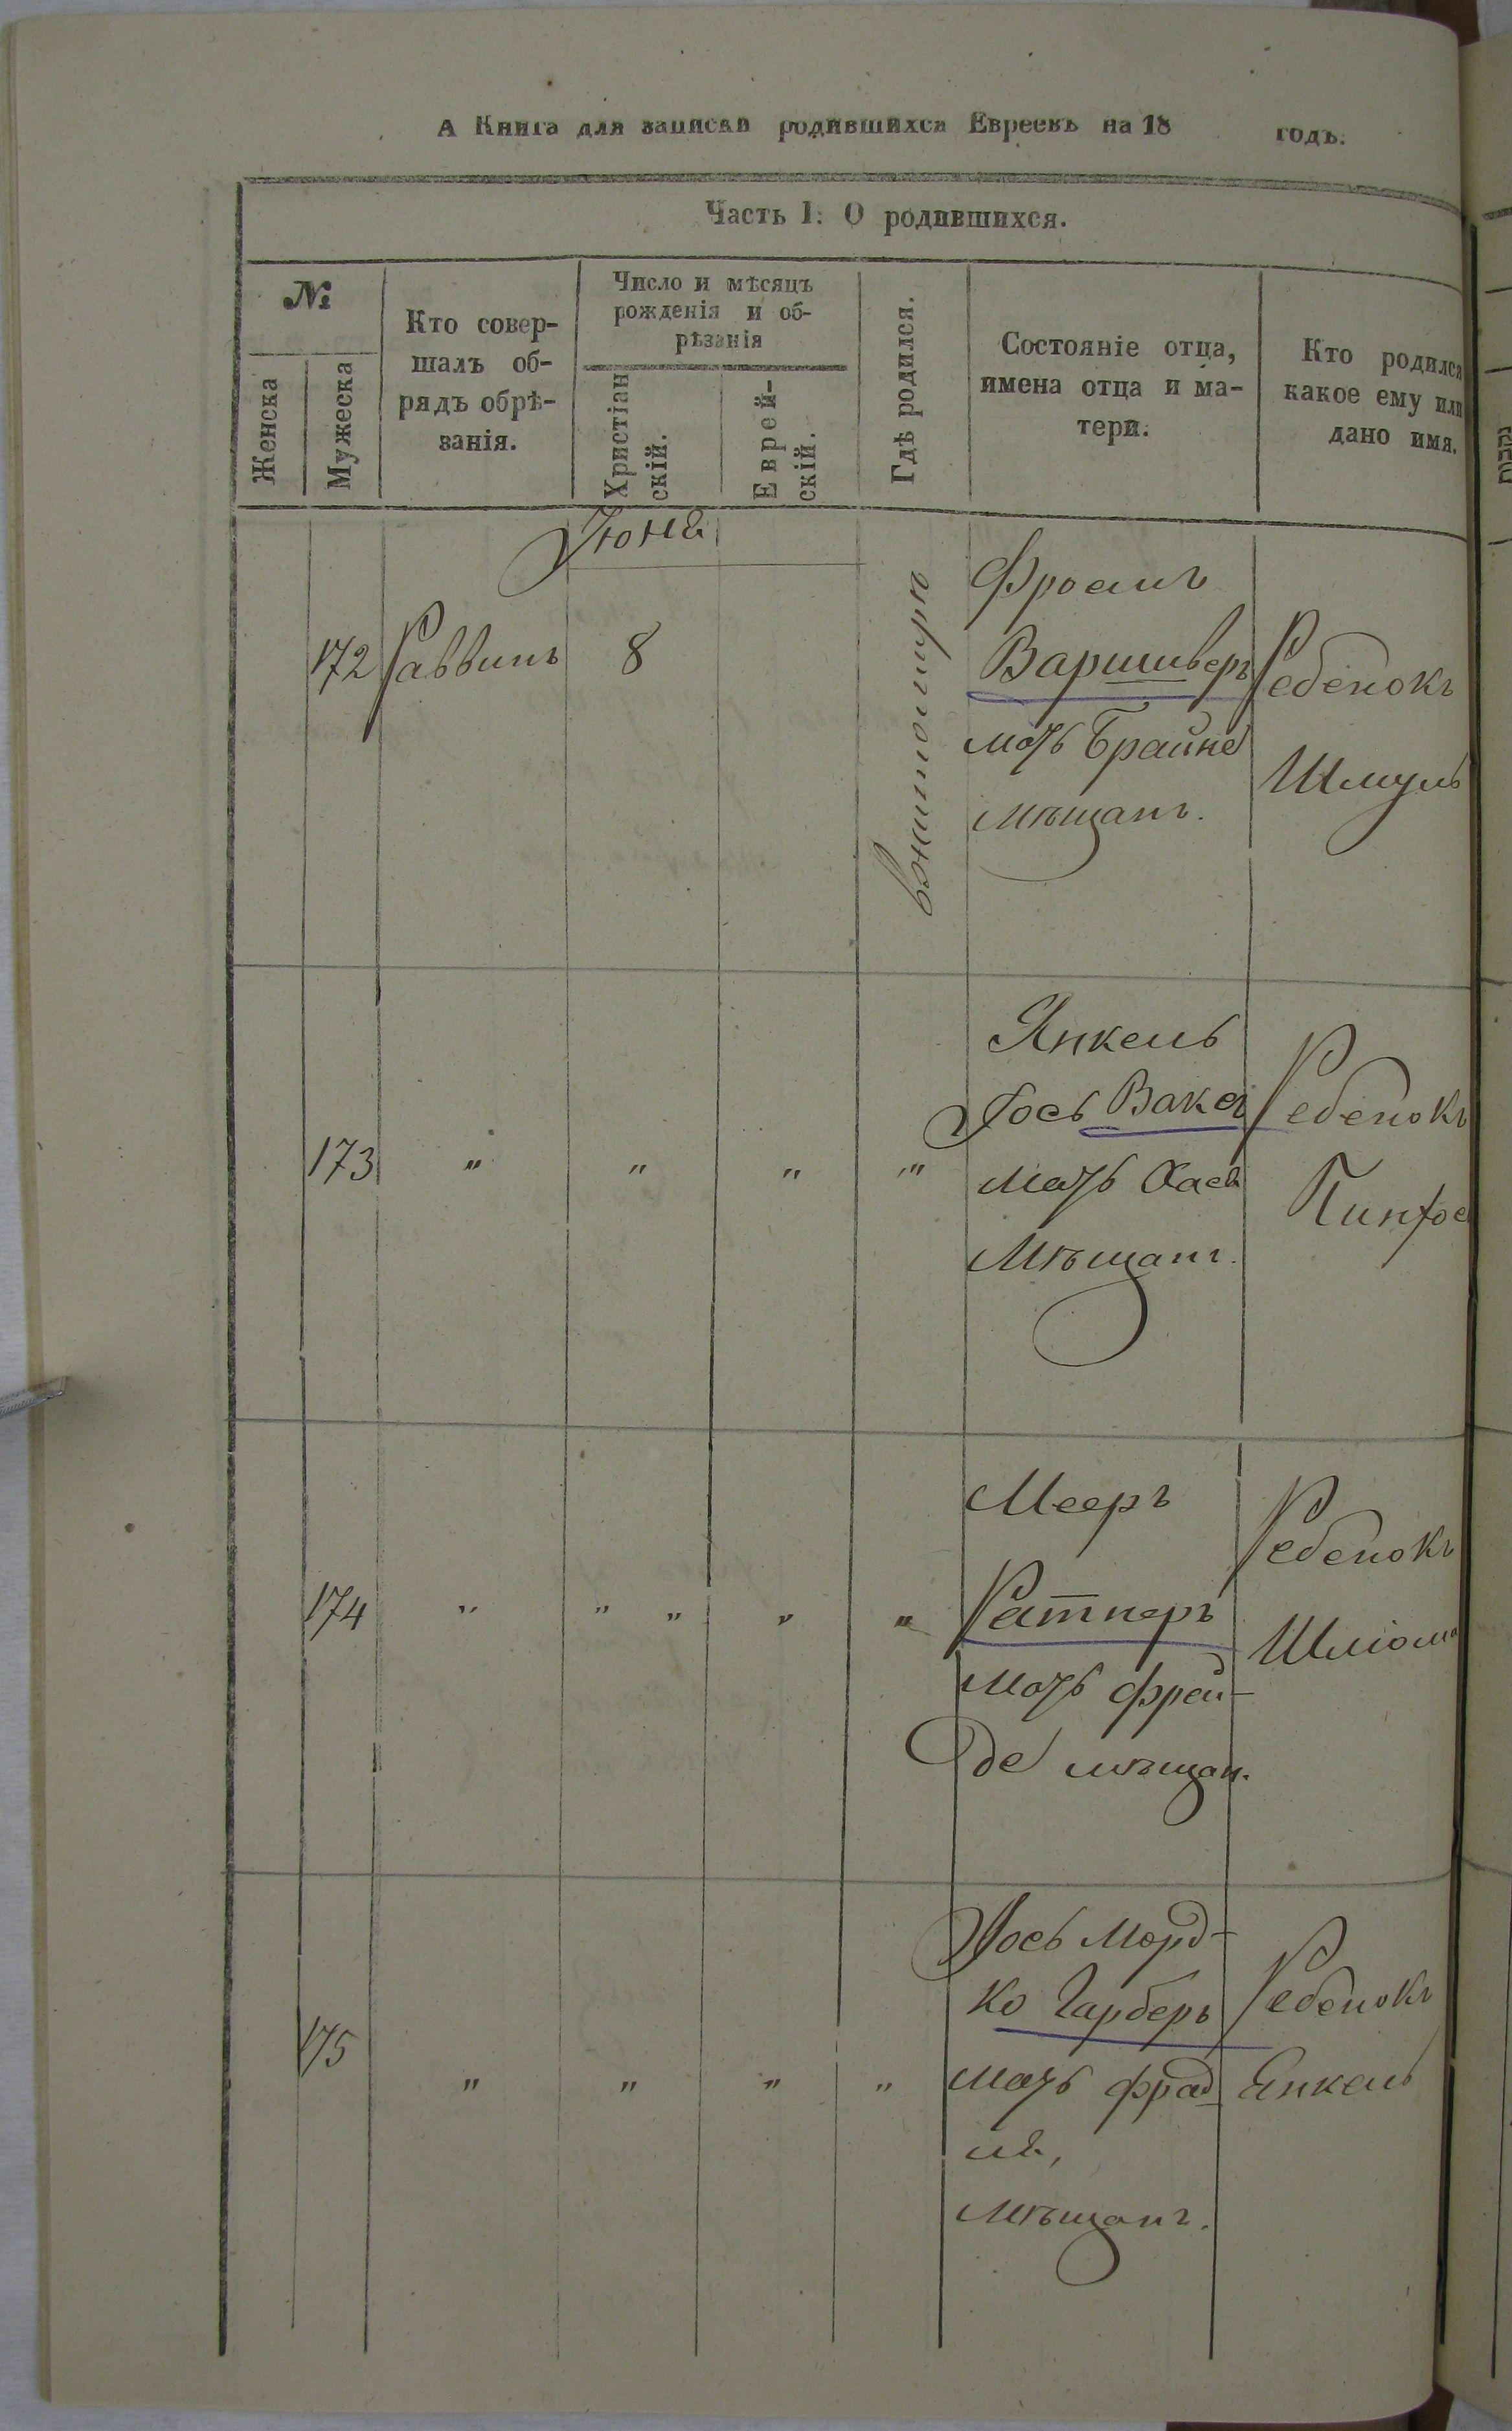 А Книга для записки родившихся Евреевъ на 18 годъ.
Часть 1. О родившихся.
№
Женска
Мужеска
Кто совер-
шалъ об-
рядъ обрѣ-
занія.
Число и мѣсяцъ
рожденія и об-
рѣзанія
Христіан
скій.
Еврей-
скій.
Гдѣ родился.
Состояніе отца,
имена отца и ма-
тери.
Кто родился
какое ему или
дано имя.
Іюня
172 Раввинъ 8
вжитомирѣ
Фроимъ
мать Брайна
мѣщанъ.
Ребенокъ
Шмуль
173 " " " "
Янкель
Іось Ваксъ
мать Хася
Мѣщанъ.
Ребенокъ
174 " " " " "
Мееръ
Ратнеръ
мать фрей-
де мѣщан.
Ребенокъ
Шліома
175 " " " "
Іось Морд-
ко Гарберъ
мать фрад
ля,
мѣщанъ.
Ребенокъ
Янкель